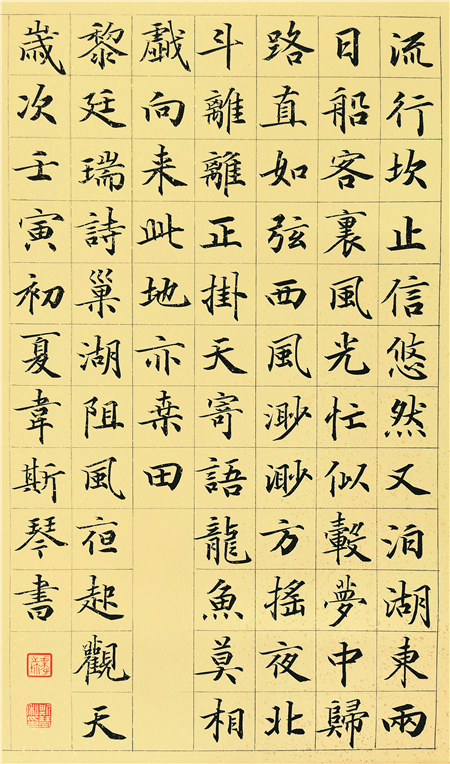 流行坎止信悠然又泊湖東兩
日船客裏風光忙似轂夢中歸
路直如弦西風渺渺方搖夜北
斗離離正掛天寄語龍魚莫相
戲向来此地亦桒田
黎廷瑞詩巢湖阻風夜起觀天
歲次壬寅初夏韋斯琴書